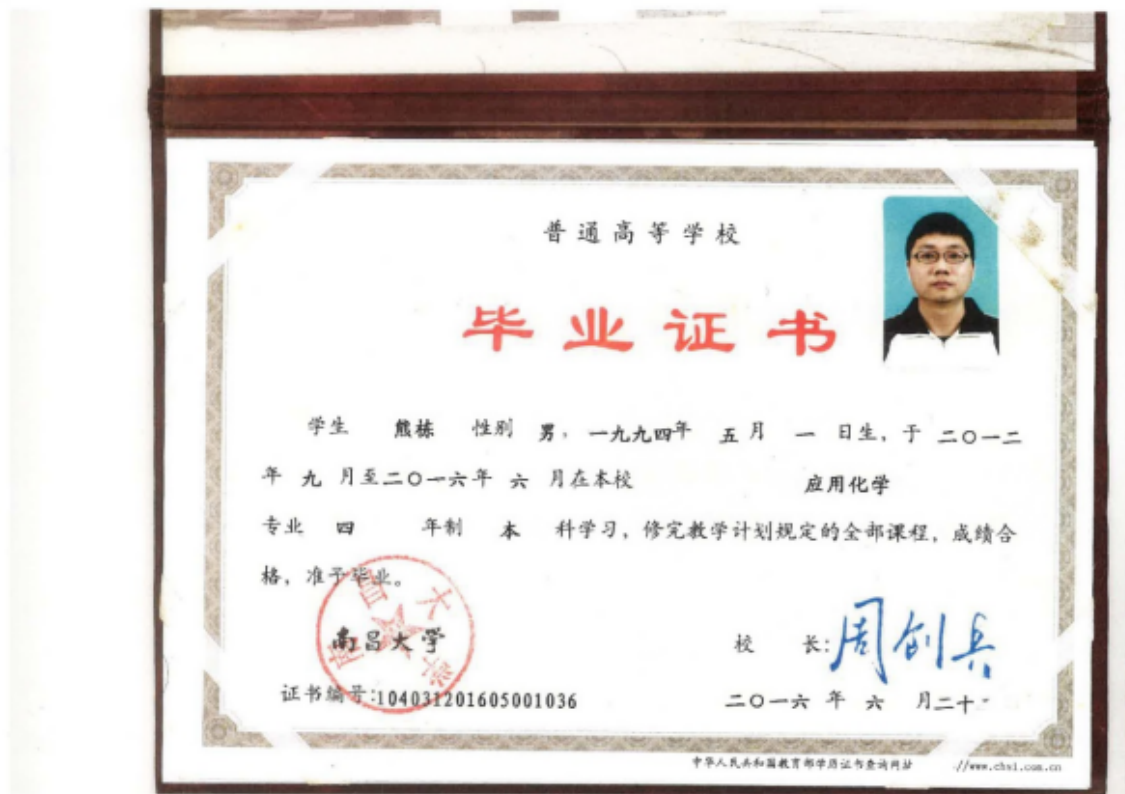 普通高等学校
毕业证书
学生 熊栋 性别 男，一九九四年 五月 一 日生，于 二〇一二
年 九 月至二〇一六年 六 月在本校 应用化学
专业 四 年制 本 科学习，修完教学计划规定的全部课程，成绩合
格，准予毕业。
南昌大学
南昌大学
校 长:周创兵
证书编号:104031201605001036
二〇一六 年 六 月二十
中华人民共和国教育部学历证书查询网址 ://www.chsi.com.cn